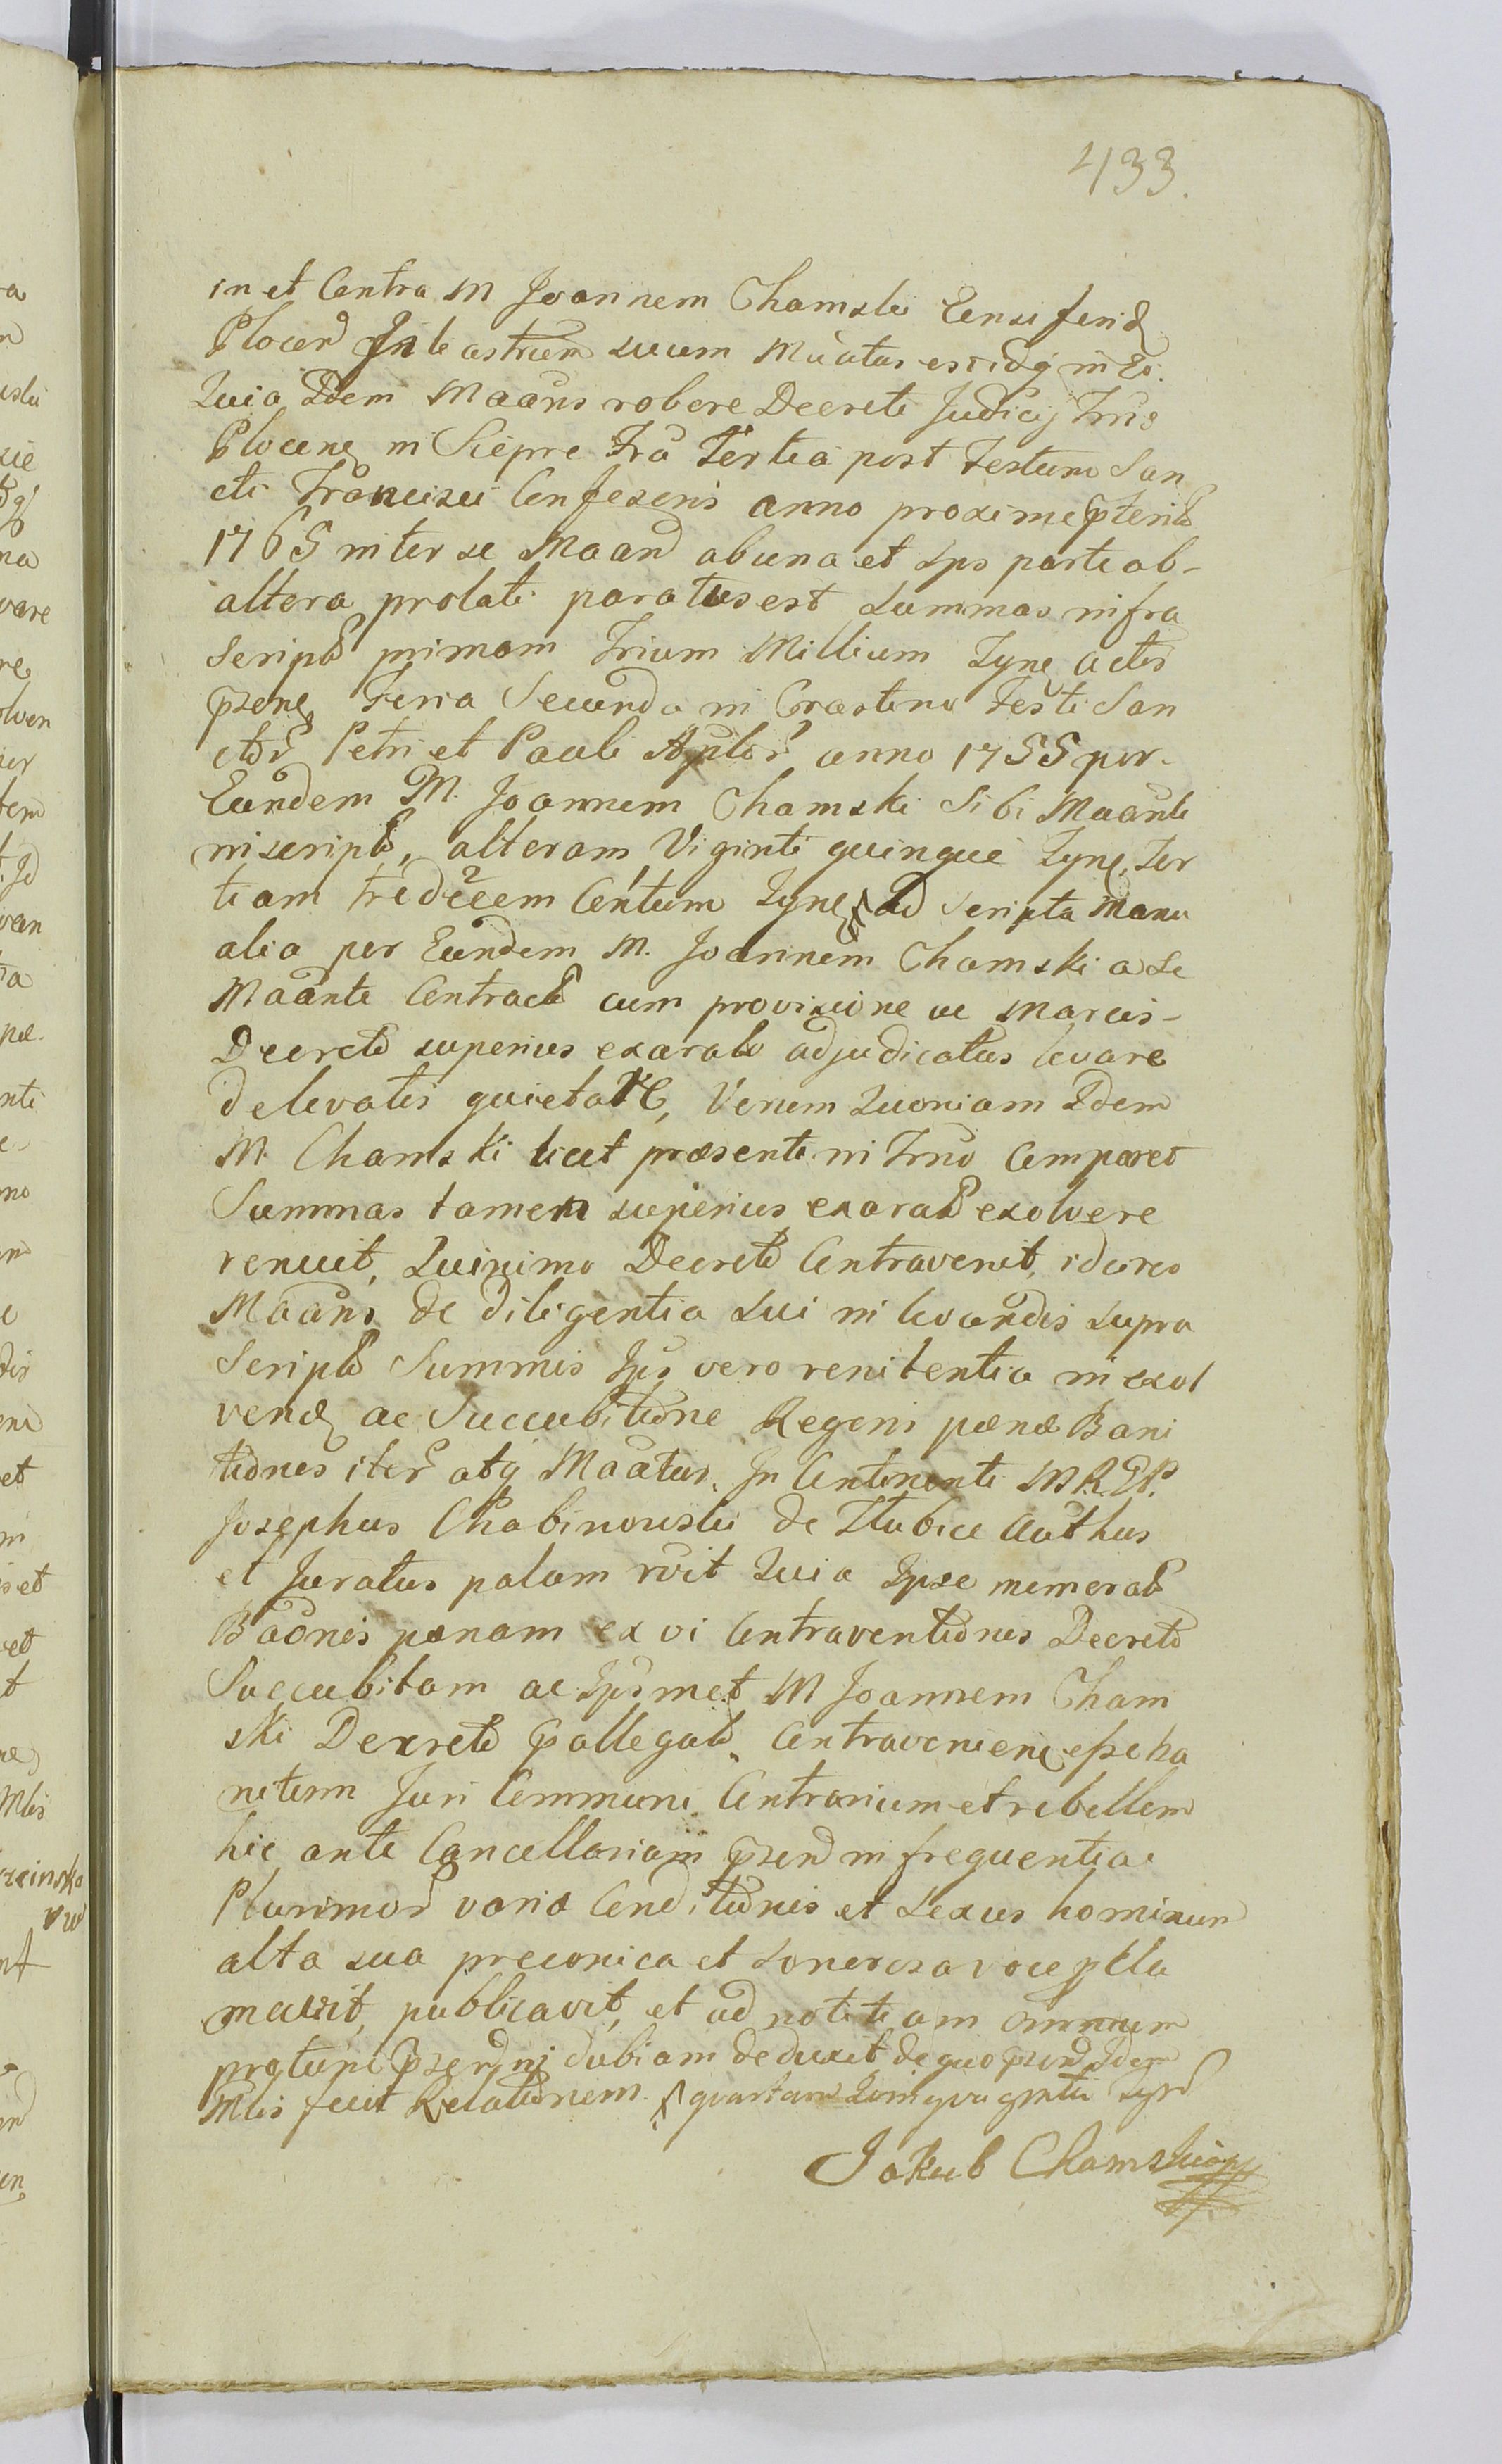 433.
in et Contra M Joannem Chamski Ensiferid
Plocen suum Mãatus est idq in Eo.
Quia Idem Maans robore Decreti Judicij Trris
Plocens in Sierpc Fra Tertia post Festum San
cti Francisci Confesoris anno proxime pterito
1765 inter se Maand ab una et Ips parte ab-
altera prolati paratus est summas infra
script primam Trium Millium Zyne actis
psene Feria Secunda in Crastino Festi San
ctor Petri et Pauli Aplor anno 1755 per-
Eundem M. Joannem Chamski Sibi Maanti
inscript, alteram Viginti quinque Zyne, Ter
tiam tredecem Centum Zyne ad Scripta Manu
alia per Eundem M. Joannem Chamski a Se
Maante Contract cum provisione ac Marcis-
Decreto superius exarato adjudicatus levare
delevatis quietare, Verum Quoniam Idem
M. Chamski licet præsenti in Trno Comparet
Summas tamen superius exarat exolvere
renuit, Quinimo Decreto Contravenit, idcirco
Maans de diligentia sui in levandis supra
Script Summis Ips vero renitentia in exol
vend ac Succubitione Regeni pænæ Bani
tionis iter atq Maatus. In Continenti M R.G.P.
Josephus Chabinowski de Slubice Cuthus
et Juratus palam rvit Quia Ipse memorat
Baonis pænam ex vi Contraventionis Decreto
Succubitam ac Ipsmet M Joannem Cham
ski Decreto pallegato Contravenien esse ba
nitum Juri Communi Contrarium et rebellem
hic ante Cancellariam psend in frequentia
Plurimor variæ Conditionis et Sexus hominum
alta sua preconica et sonorosa voce pcla
mavit, publicavit, et ad notitiam omnium
deduxit de quo psend Idem
Mlis fecit Relationem. quartam Quinquaginta Zyne
Jakub Chamski